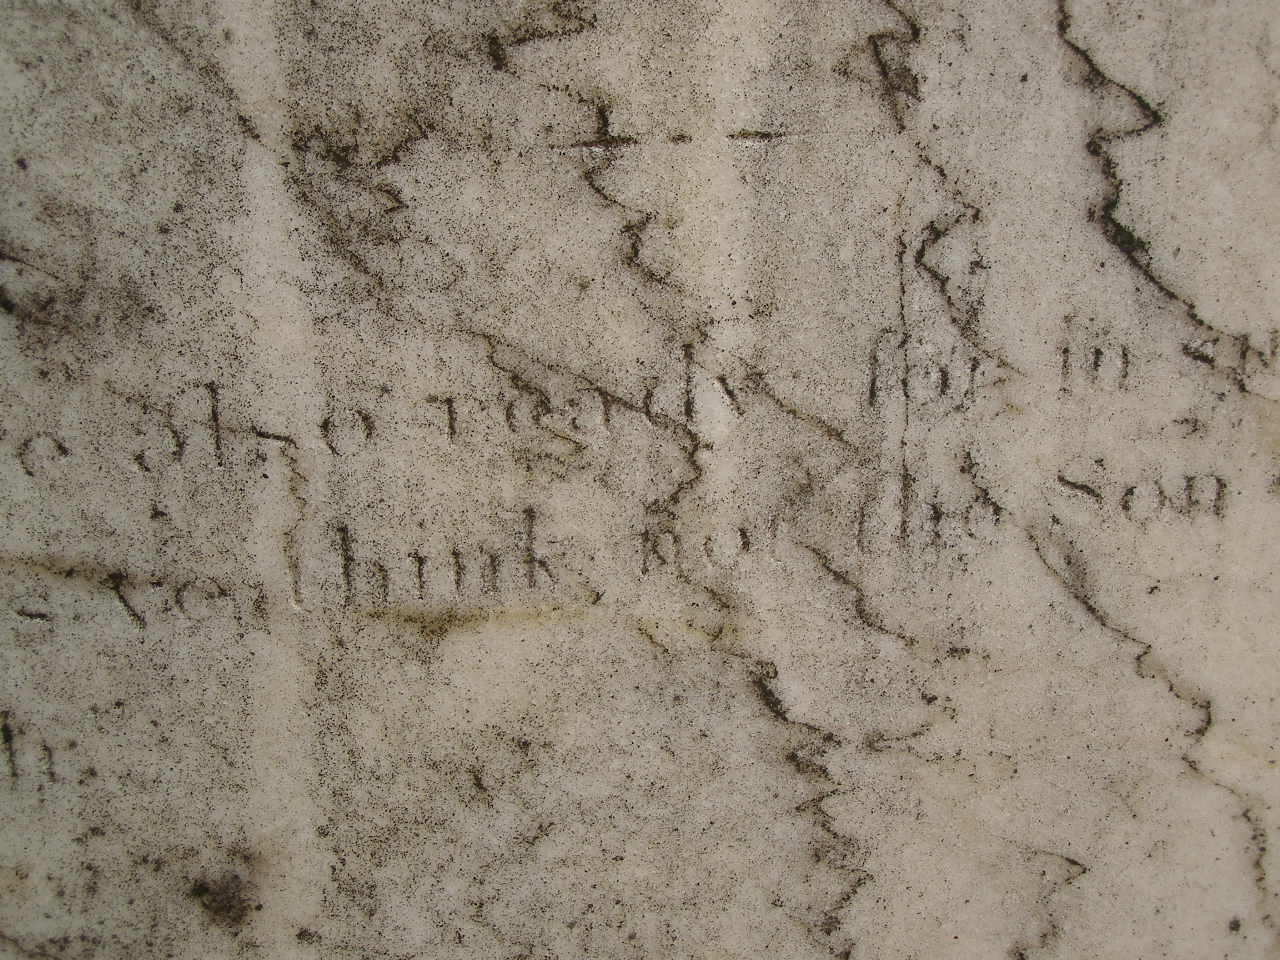 e also ready for in
ye think not the Son